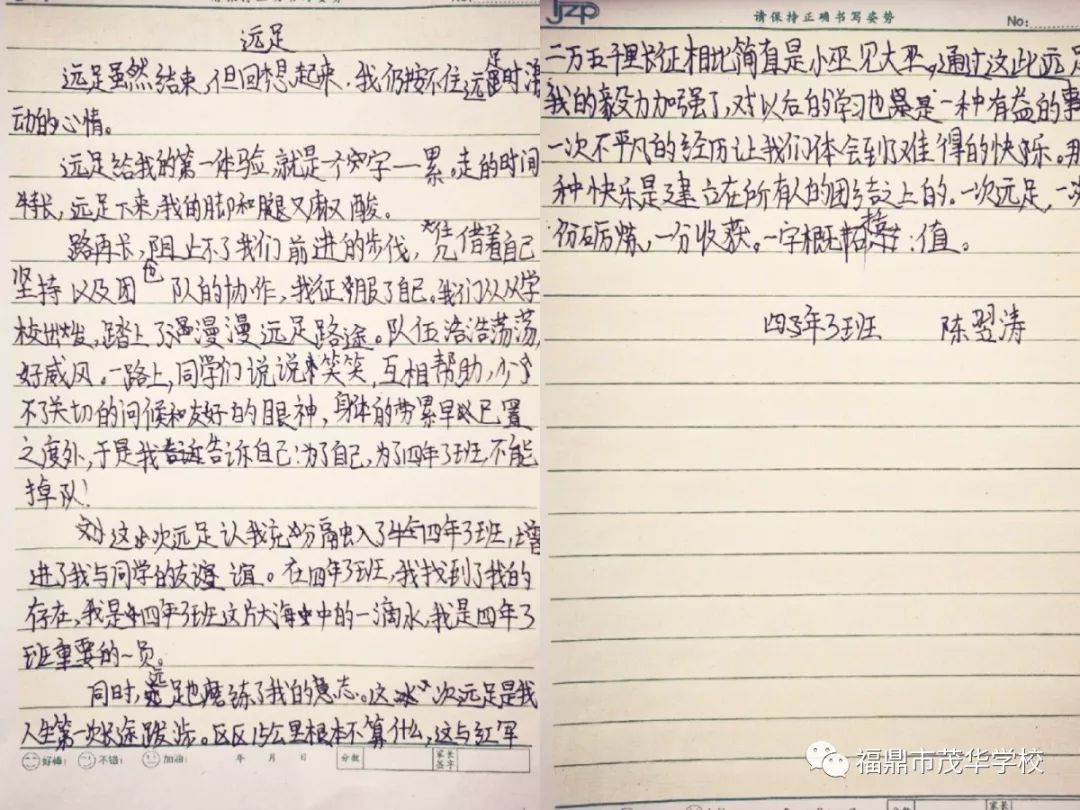 远足
远足虽然结束,但回想起来,我仍按不住远足时激
动的心情。
远足给我的第一体验,就是一个字—累。走的时间
特长,远足下来,我的脚和腿又麻又酸。
路再长,阻止不了我们前进的步伐,凭借着自己
坚持以及团队的协作,我征服了自己。我们从从学
校出发,踏上了漫漫远足路途。队伍浩浩荡荡,
好威风。一路上,同学们说说笑笑,互相帮助,少
不了关切的问候和友好的眼神,身体的劳累早已置
之度外,于是我告诉自己:为了自己,为了四年3班,不能
掉队!
这次远足认我充分融入了四年3班,增
进了我与同学的友谊。在四年3班,我找到了我的
存在,我是四年3班这片大海中的一滴水,我是四年3
班重要的一员。
同时,远足也磨练了我的意志。这次远足是我
人生第一次长途跋涉。区区15公里根本不算什么,这与红军
好棒: 不错: 加油: 年 月 日 分数 家长签字
请保持正确书写姿势
No:
二万五千里长征相比简直是小巫见大巫。通过这此远足
我的毅力加强了,对以后的学习也是一种有益的事
一次不平凡的经历让我们体会到了难得的快乐。那
种快乐是建立在所有人的团结之上的。一次远足,一次
份砺炼,一分收获。一字概括:值。
四年3班 陈翌涛
福鼎市茂华学校